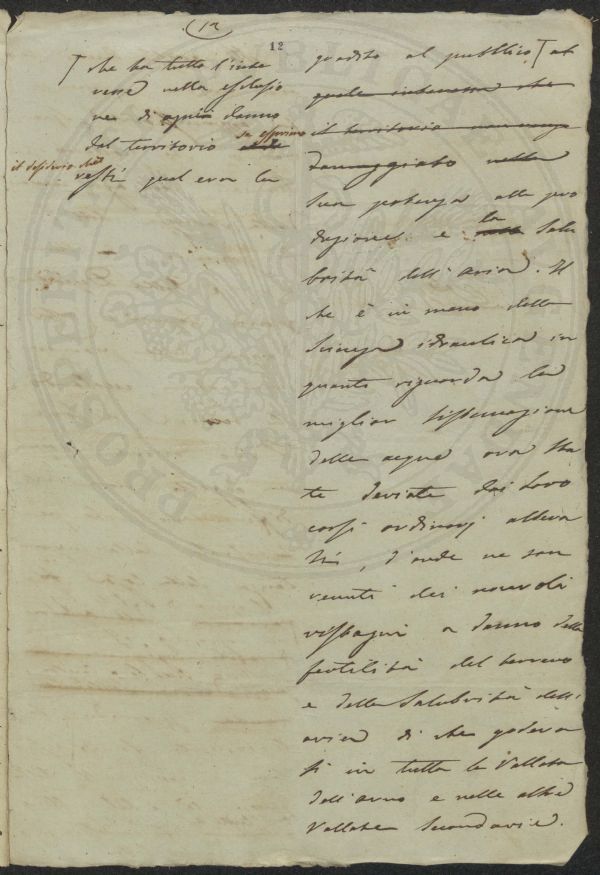 12
12
che ha tutto l'inte
resse nella esclusio
ne di ogni danno
del territorio
si esprima
il desiderio che
resti qual era la
gradito al pubblico
quale interessa che
il territorio non venga
danneggiato nella
sua potenza alle pro
duzioni e la salu
brità dell'aria. Il
che è in mano della
Scienza idraulica in
quanto riguarda la
miglior sistemazione
delle acque ora sta
te deviate dai loro
corsi ordinarj alleva
ti, d'onde ne son
venuti dei nocevoli
ristagni a danno della
fertilità del terreno
e della Salubrità dell'
aria di che godeva
si in tutta la Vallata
dell'arno e nelle altre
Vallate Secondarie.
PROSPERITÀ
PUBLICA